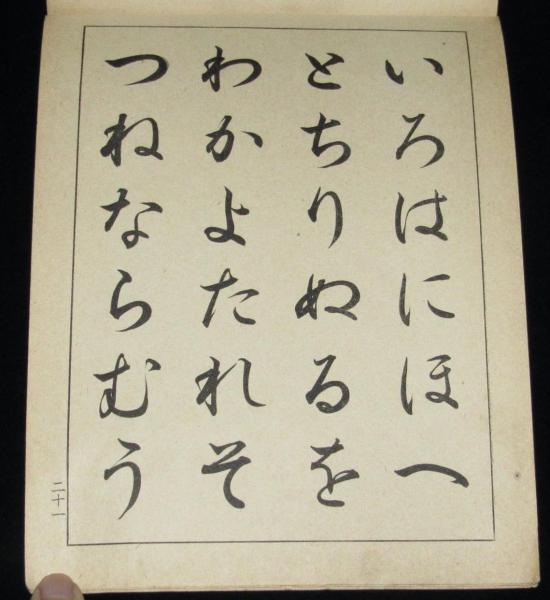 いろはにほへ
とちりぬるを
わかよたれそ
つねならむう
二十一